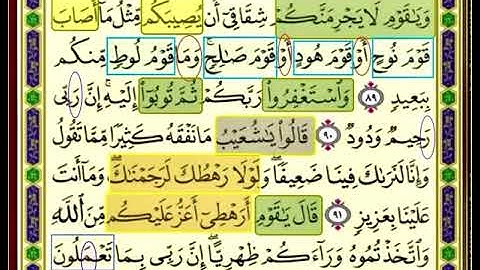 وَيَـٰقَوْمِ لَا يَجْرِمَنَّكُمْ شِقَاقِىٓ أَن يُصِيبَكُم مِّثْلُ مَآ أَصَابَ
قَوْمَ نُوحٍ أَوْ قَوْمَ هُودٍ أَوْ قَوْمَ صَـٰلِحٍ ۚ وَمَا قَوْمُ لُوطٍ مِّنكُم
بِبَعِيدٍ ٨٩ وَٱسْتَغْفِرُوا۟ رَبَّكُمْ ثُمَّ تُوبُوٓا۟ إِلَيْهِ ۚ إِنَّ رَبِّى
رَحِيمٌ وَدُودٌ ٩٠ قَالُوا۟ يَـٰشُعَيْبُ مَا نَفْقَهُ كَثِيرًا مِّمَّا تَقُولُ
وَإِنَّا لَنَرَىٰكَ فِينَا ضَعِيفًا ۖ وَلَوْلَا رَهْطُكَ لَرَجَمْنَـٰكَ ۖ وَمَآ أَنتَ
عَلَيْنَا بِعَزِيزٍ ٩١ قَالَ يَـٰقَوْمِ أَرَهْطِىٓ أَعَزُّ عَلَيْكُم مِّنَ ٱللَّهِ
وَٱتَّخَذْتُمُوهُ وَرَآءَكُمْ ظِهْرِيًّا ۖ إِنَّ رَبِّى بِمَا تَعْمَلُونَ